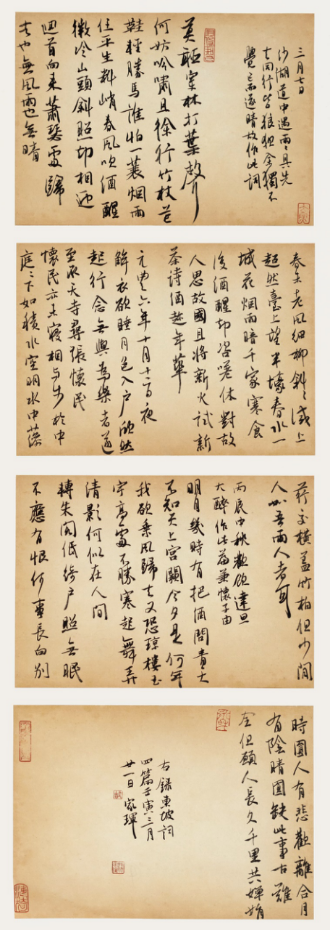 三月七日
沙湖道中遇雨雨具先
去同行皆狼狽余獨不
覺已而遂晴故作此詞
莫聽穿林打葉聲
何妨吟嘯且徐行竹杖芒
鞋輕勝馬誰怕一蓑烟雨
任平生料峭春風吹酒醒
微冷山頭斜照却相迎
回首向來蕭瑟處歸
去也無風雨也無晴
春未老風細柳斜斜試上
超然臺上望半壕春水一
城花烟雨暗千家寒食
後酒醒却咨嗟休對故
人思故國且將新火試新
茶詩酒趁年華
元豐六年十月十二日夜
解衣欲睡月色入戶欣然
起行念無與為樂者遂
至承天寺尋張懷民
懷民亦未寢相與步於中
庭庭下如積水空明水中藻
荇交橫蓋竹柏但少閒
人如吾兩人者耳
丙辰中秋歡飲達旦
大醉作此篇兼懷子由
明月幾時有把酒問青天
不知天上宮闕今夕是何年
我欲乘風歸去又恐瓊樓玉
宇高處不勝寒起舞弄
清影何似在人間
轉朱閣低綺戶照無眠
不應有恨何事長向別
時圓人有悲歡離合月
有陰晴圓缺此事古難
全但願人長久千里共嬋娟
右錄東坡詞
四篇壬寅三月
廿一日 家琿